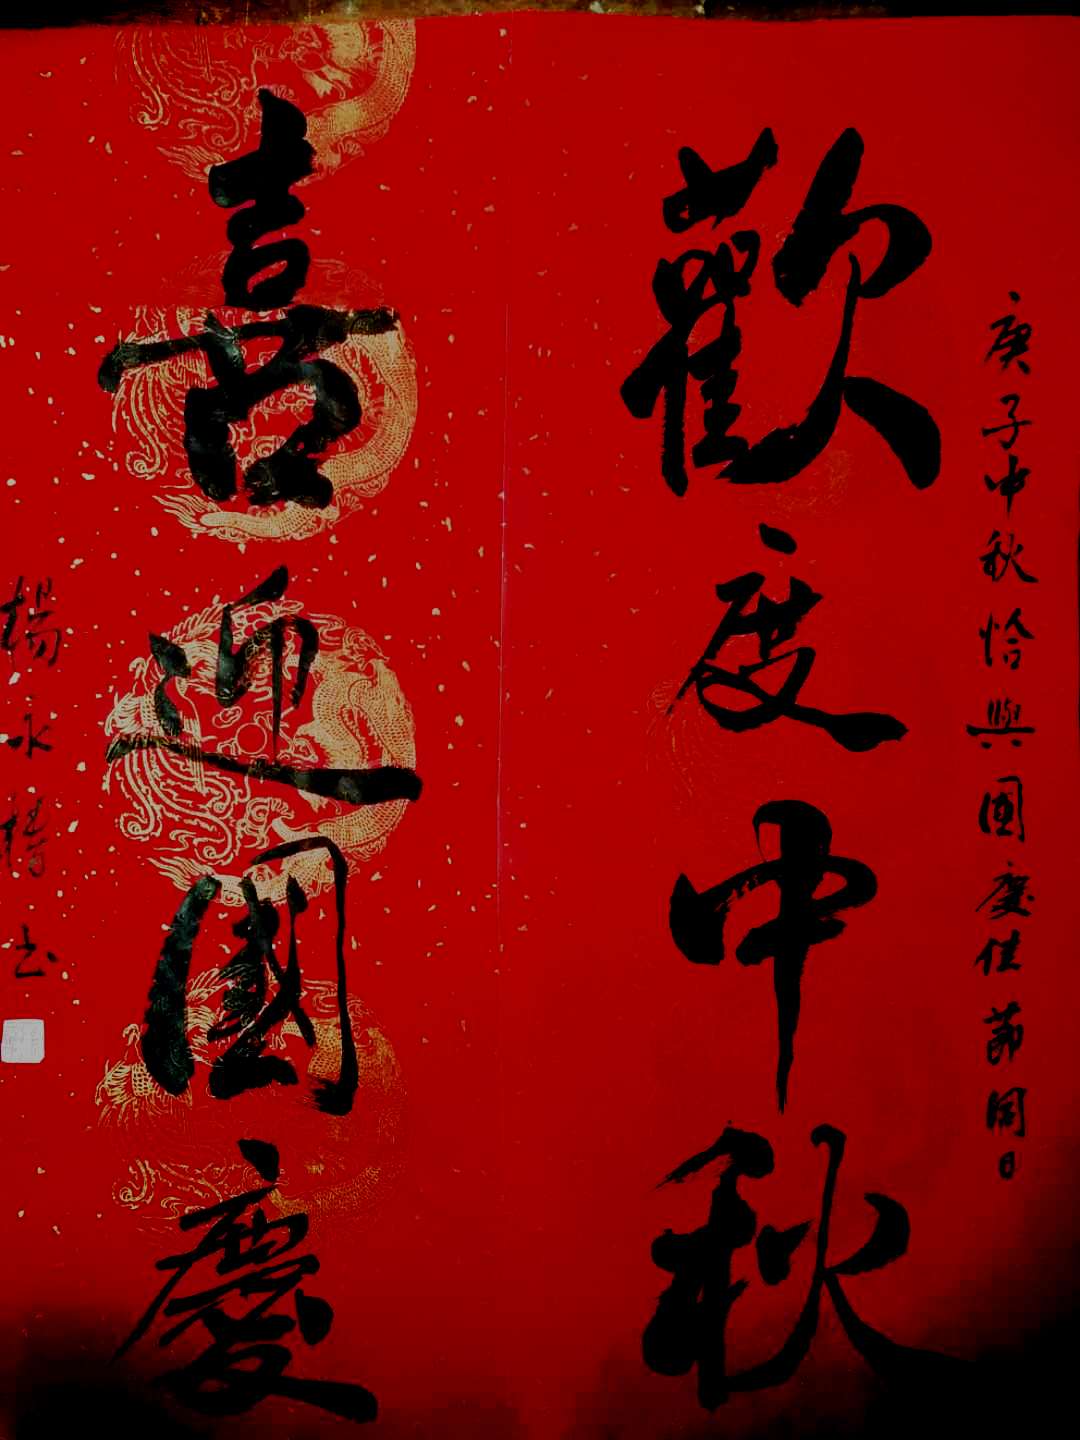 庚子中秋恰與國慶佳節同日
歡度中秋
喜迎國慶
楊永椿书